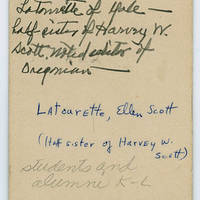 Latourette of Yale —
half sister of Harvey W.
Scott, noted editor of
Oregonian —
Latourette, Ellen Scott
(Half sister of Harvey W.
Scott)
students and
alumni K-L